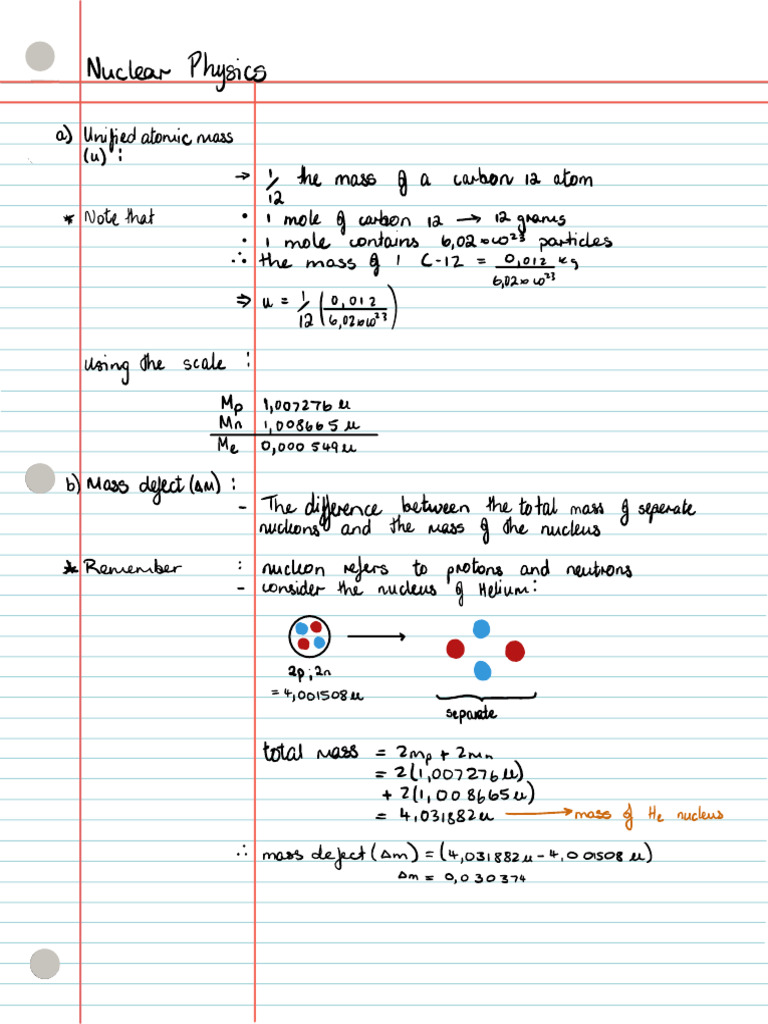 Nuclear Physics
a) Unified atomic mass
(u) :
→ 1/12 the mass of a carbon 12 atom
* Note that • 1 mole of carbon 12 → 12 grams
• 1 mole contains 6,02×10²³ particles
∴ the mass of 1 C-12 = 0,012/6,02×10²³ kg
⇒ u = 1/12 (0,012/6,02×10²³)
using the scale :
Mp 1,007276 u
Mn 1,008665 u
Me 0,000549u
b) Mass defect (ΔM) :
- The difference between the total mass of seperate
nucleons and the mass of the nucleus
* Remember : nucleon refers to protons and neutrons
- consider the nucleus of Helium:
2p ; 2n
= 4,001508u
separate
total mass = 2mp + 2mn
= 2(1,007276u)
+ 2(1,008665u)
= 4,031882u → mass of He nucleus
∴ mass defect (Δm) = (4,031882u - 4,001508u)
Δm = 0,030374